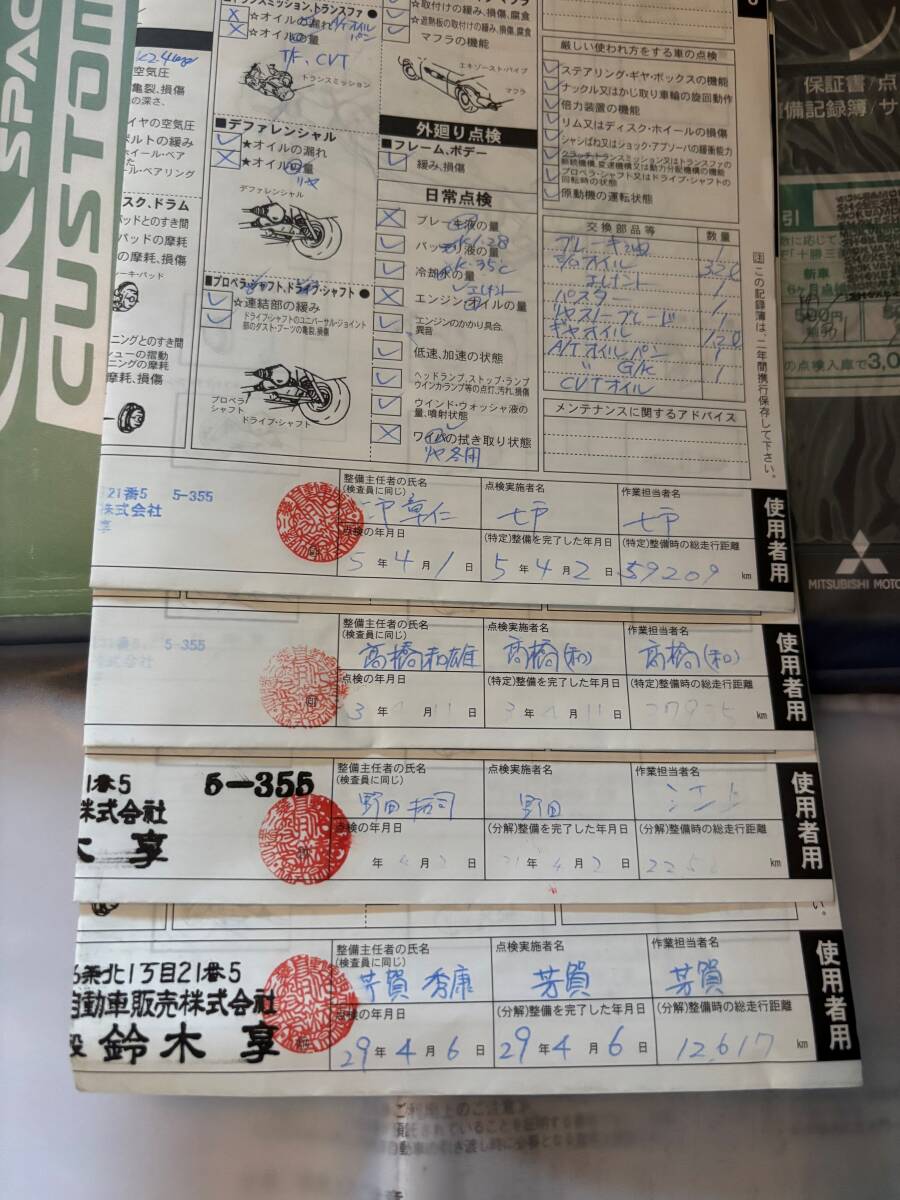 CUSTOM
SPAC
トランスミッション、トランスファ
☆オイルの漏れ
☆オイルの量
T/F, CVT
トランスミッション
☆取付けの緩み、損傷、腐食
☆遮熱板の取付けの緩み、損傷、腐食
マフラの機能
エキゾースト・パイプ
マフラ
空気圧
亀裂、損傷
の深さ、
イヤの空気圧
ボルトの緩み
ホイール・ベア
ール・ベアリング
■デファレンシャル
★オイルの漏れ
★オイルの量
リヤ
デファレンシャル
スク、ドラム
パッドとのすき間
パッドの摩耗
の摩耗、損傷
ーキ・パッド
ニングとのすき間
シューの摺動
ニングの摩耗
摩耗、損傷
■プロペラ・シャフト、ドライブ・シャフト
☆連結部の緩み
ドライブ・シャフトのユニバーサル・ジョイント
部のダスト・ブーツの亀裂、損傷
プロペラ・
シャフト
ドライブ・シャフト
外廻り点検
■フレーム、ボデー
緩み、損傷
日常点検
ブレーキ液の量
バッテリ液の量
冷却水の量
-35℃
エンジン・オイルの量
エンジンのかかり具合、
異音
低速、加速の状態
ヘッドランプ、ストップ・ランプ
ウインカランプ等の点灯、汚れ、損傷
ウインド・ウォッシャ液の
量、噴射状態
ワイパの拭き取り状態
リヤ冬用
厳しい使われ方をする車の点検
ステアリング・ギヤ・ボックスの機能
ナックル又はかじ取り車輪の旋回動作
倍力装置の機能
リム又はディスク・ホイールの損傷
シャシばね又はショック・アブソーバの緩衝能力
プロペラ・シャフト又はドライブ・シャフトの
回転時の状態
原動機の運転状態
交換部品等 数量
ブレーキ油 1
E/Oオイル 3.2ℓ
エレメント 1
バスター
リヤスノーブレード 1
ギヤオイル 1.2ℓ
A/Tオイルパン 1
〃 G/K 1
CVTオイル
メンテナンスに関するアドバイス
注この記録簿は、二年間携行保存して下さい。
保証書/点
備記録簿/サ
引
「十勝三
新車
6ヶ月点検
500円
の点検入庫で3,0
MITSUBISHI MOTO
21番5 5-355
株式会社
享
整備主任者の氏名
(検査員に同じ)
点検実施者名
作業担当者名
七戸章仁 七戸 七戸
点検の年月日
(特定)整備を完了した年月日
(特定)整備時の総走行距離
5年4月1日 5年4月2日 59209 km
使用者用
21番5 5-355
株式会社
整備主任者の氏名
(検査員に同じ)
点検実施者名
作業担当者名
高橋和雄 高橋(和) 高橋(和)
点検の年月日
(特定)整備を完了した年月日
(特定)整備時の総走行距離
3年4月11日 3年4月11日 km
使用者用
21番5 5-355
株式会社
木 享
整備主任者の氏名
(検査員に同じ)
点検実施者名
作業担当者名
野田拓司 野田 江上
点検の年月日
(分解)整備を完了した年月日
(分解)整備時の総走行距離
年4月2日 年4月2日 km
使用者用
6条北1丁目21番5
自動車販売株式会社
役 鈴木 享
整備主任者の氏名
(検査員に同じ)
点検実施者名
作業担当者名
芳賀秀康 芳賀 芳賀
点検の年月日
(分解)整備を完了した年月日
(分解)整備時の総走行距離
29年4月6日 29年4月6日 12,617 km
使用者用
ご利用上のご注意